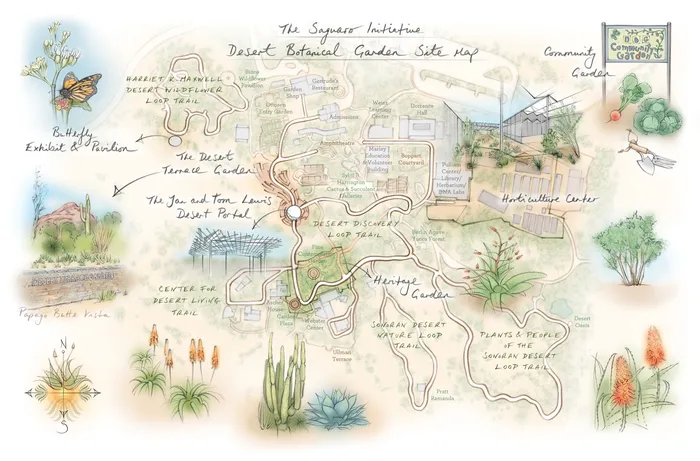 The Saguaro Initiative
Desert Botanical Garden Site Map
Community
Garden
DBG
Community
Garden
HARRIET K. MAXWELL
DESERT WILDFLOWER
LOOP TRAIL
Wildflower
Pavilion
Garden
Shop
Gertrude's
Restaurant
Ottosen
Entry Garden
Admissions
Weisz
Learning
Center
Dorrance
Hall
Butterfly
Exhibit & Pavilion
Amphitheatre
Marley
Education
& Volunteer
Building
Boppart
Courtyard
The Desert
Terrace Garden
Sybil B.
Harrington
Cactus & Succulent
Galleries
Center/
Library/
Herbarium/
DNA Labs
Horticulture Center
The Jan and Tom Lewis
Desert Portal
DESERT DISCOVERY
LOOP TRAIL
Berlin Agave
Yucca Forest
CENTER FOR
DESERT LIVING
TRAIL
Heritage
Garden
Papago Butte Vista
House
Plaza
Center
Ullman
Terrace
SONORAN DESERT
NATURE LOOP
TRAIL
PLANTS & PEOPLE
OF THE
SONORAN DESERT
LOOP TRAIL
Desert
Oasis
Pratt
Ramada
N
S